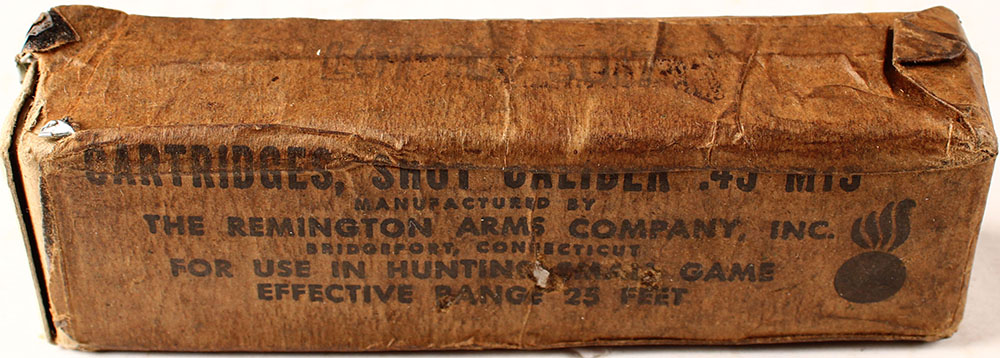 CARTRIDGES, SHOT CALIBER .45 M15
MANUFACTURED BY
THE REMINGTON ARMS COMPANY, INC.
BRIDGEPORT, CONNECTICUT
FOR USE IN HUNTING SMALL GAME
EFFECTIVE RANGE 25 FEET